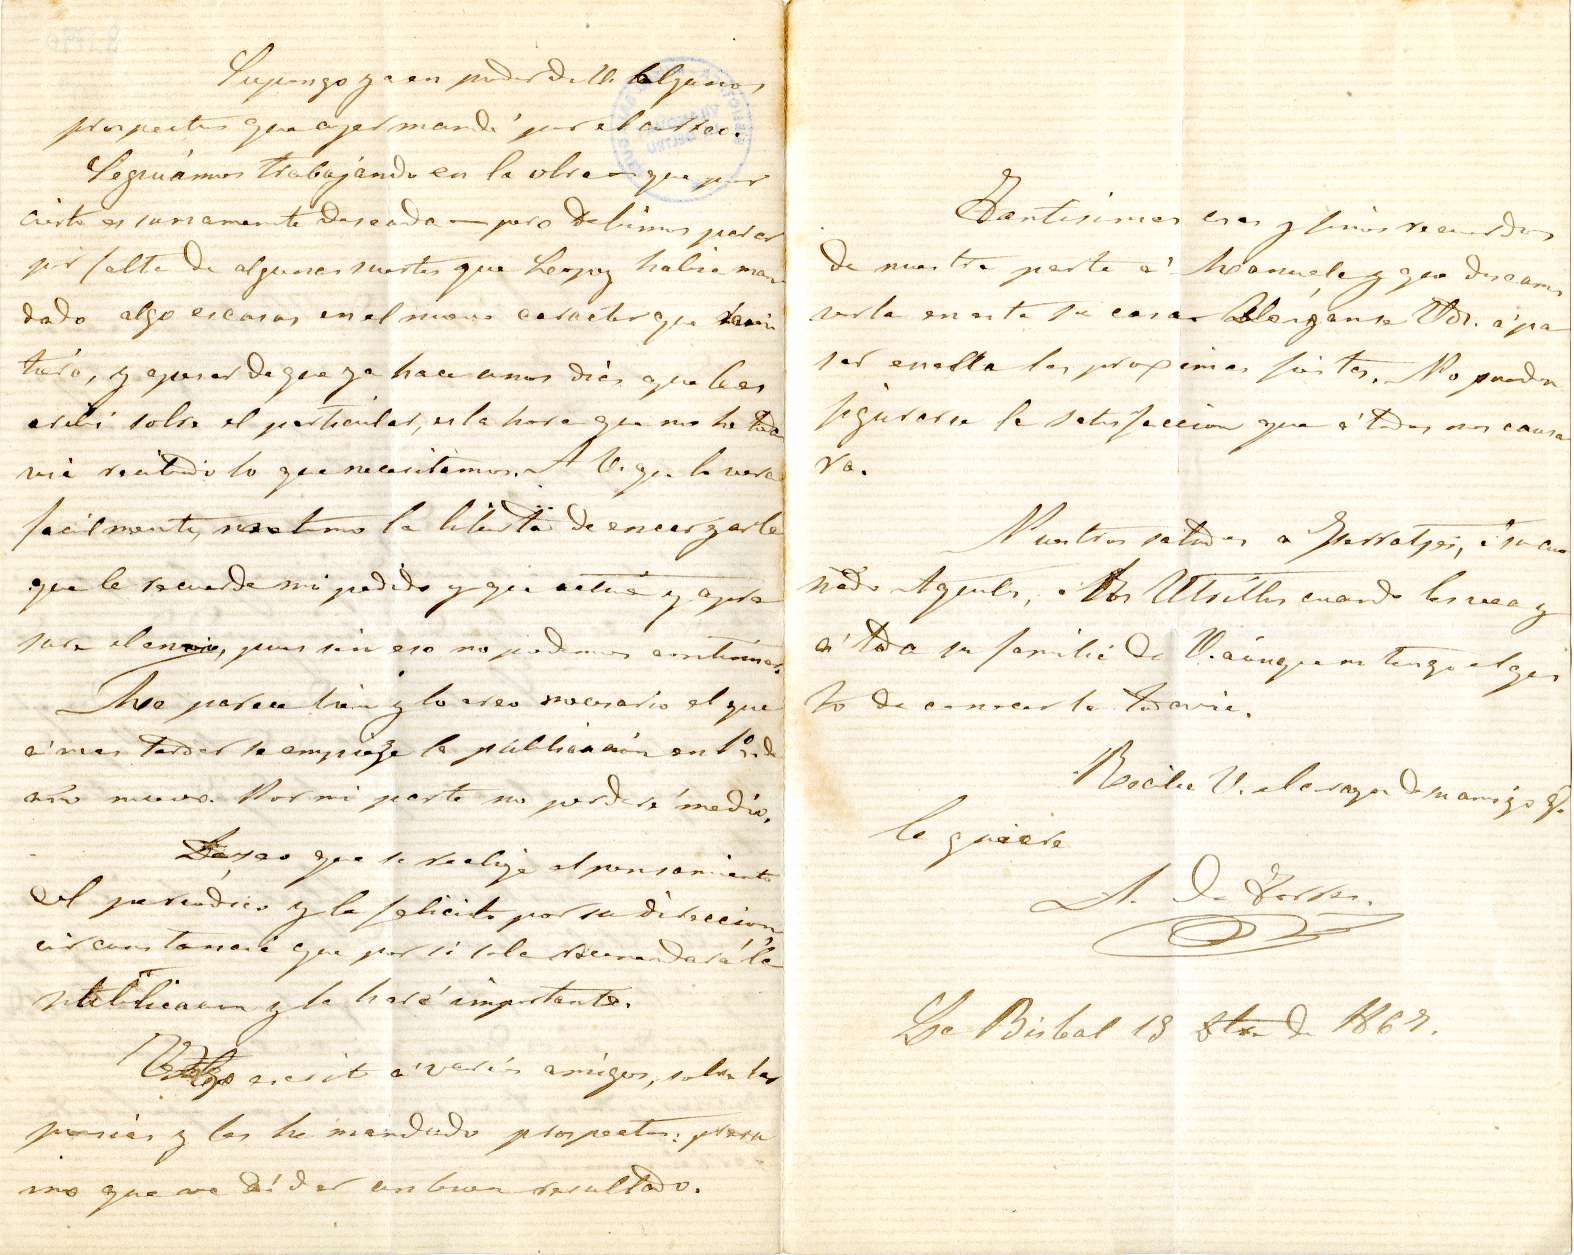 Supongo ya en poder de V. algunos
prospectos que ayer mandé por el correo.
Seguiamos trabajando en la obra — que por
cierto es sumamente deseada — pero debimos parar
por falta de algunas suertes que Lopez habia man
dado algo escasas en el nuevo caracter que
y apesar de que ya hace unos dias que le es
cribi sobre el particular, es la hora que no he toda
via recibido lo que necesitamos. A V. que le vera
facilmente, me tomo la libertad de encargarle
que le recuerde mi pedido y que active y apre
sure el envio, pues sin eso no podemos continuar.
Me parece bien y lo creo necesario el que
á mas tardar se empieze la publicacion en 1º. de
año nuevo. Por mi parte no perderé medio.
Deseo que se realize el pensamiento
del periódico y le felicito por su direccion
circunstancia que por si sola recomendará la
publicacion y la hará importante.
Tengo escrito á varios amigos, sobre las
poesias y les he mandado prospectos: presu
mo que me há de dar un buen resultado.
Tantisimas cosas y finos recuerdos
de nuestra parte á Manuela y que deseamos
verla en esta su casa. Vénganse Vds. á pa
sar en ella las proximas fiestas. No pueden
figurarse la satisfaccion que á todos nos causa
ra.
Nuestros saludos a á su cu
ñado cuando les vea y
á toda su familia de V. aunque no tengo el gus
to de conocerla todavia.
Recibe V. el corazon de su amigo q.
le quiere
A. de Torres.
La Bisbal 18 de 1867.